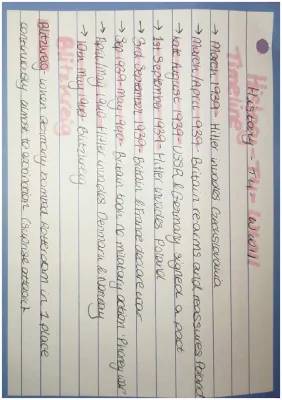 History - TII - WWII
Timeline
→ March 1939- Hitler invades Czechoslovakia
→ March/April 1939- Britain rearms and reassures Poland
→ late August 1939- USSR & Germany signed a pact
→ 1st September 1939- Hitler invades Poland
→ 3rd September 1939- Britain & France declare war
→ Sep 1939-May 1940- Britain took no military action. 'Phoney war'
→ April/May 1940- Hitler invades Denmark & Norway
→ 10th May 1940- Blitzkrieg
Blitzkrieg
Blitzkrieg- when Germany bombed Rotterdam in 1 place
continuously aimed to (surprise attack).